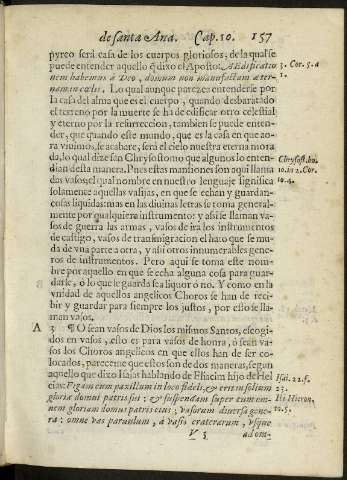 de santa Ana. Cap. 10. 157
pyreo será casa de los cuerpos gloriosos, de la qual se
puede entender aquello q̃ dixo el Apostol: Ædificatio
nem habemus à Deo, domum non manufactam æter-
nam in cœlis. Lo qual aunque parezca entenderse por
la casa del alma que es el cuerpo, quando desbaratado
el terreno por la muerte se ha de edificar otro celestial
y eterno por la resurreccion, tambien se puede enten-
der, que quando este mundo, que es la casa en que ao-
ra viuimos, se acabare, será el cielo nuestra eterna mora
da, lo qual dize san Chrysostomo que algunos lo enten-
dian desta manera. Pues estas mansiones son aqui llama
das vasos, el qual nombre en nuestro lenguaje significa
solamente aquellas vasijas, en que se echan y guardan
cosas liquidas: mas en las diuinas letras se toma general-
mente por qualquiera instrumento: y assi se llaman va-
sos de guerra las armas, vasos de ira los instrumentos
de castigo, vasos de transmigracion el hato que se mu-
da de vna parte a otra, y assi otros innumerables gene-
ros de instrumentos. Pero aqui se toma este nom-
bre por aquello en que se echa alguna cosa para guar-
darle, o lo que le guarda sea liquor ó no. Y como en la
vnidad de aquellos angelicos Choros se han de reci-
bir y guardar para siempre los justos, por esso se lla-
man vasos.
A 3 ¶ O sean vasos de Dios los mismos Santos, escogi-
dos en vasos, esto es para vasos de honra, ó sean va-
sos los Choros angelicos en que ellos han de ser co-
locados, pareceme que estos son de dos maneras, segun
aquello que dixo Isaias hablando de Eliacim hijo de Hel
cias: Figam eum paxillum in loco fideli, & erit in solium
gloriæ domui patris sui: & suspendam super eum om-
nem gloriam domus patris eius; vasorum diuersa gene-
ra: omne vas paruulum, à vasis craterarum, vsque
V 5 ad om-
3. Cor. 5. a
1.
Chrysost. ho.
10. in 2. Cor.
10. 4.
Isai. 22. f.
23.
Hieron.
10. 5.